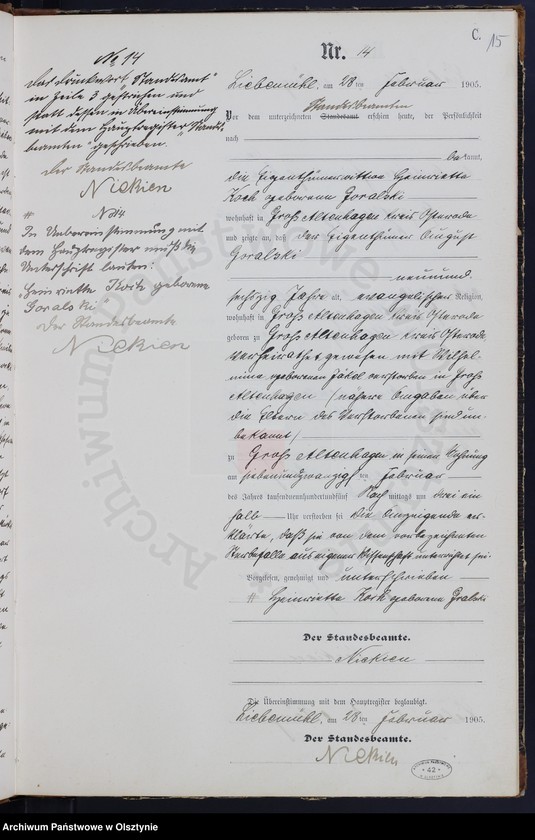 C.
15
No 14
Das Druckwort "Standesamt"
in Zeile 3 gestrichen und
statt dessen in Übereinstimmung
mit dem Hauptregister "Standes-
beamten" geschrieben.
Der Standesbeamte
Nickien
# No 14
In Uebereinstimmung mit
dem Hauptregister muß die
Unterschrift lauten:
Heinriette Kork geborene
Goralski"
Der Standesbeamte
Nickien
Nr. 14
Liebemühl, am 28 ten Februar 1905.
Standesbeamten
Vor dem unterzeichneten Standesamt erschien heute, der Persönlichkeit
nach
bekannt,
die Eigenthümerwittwe Heinriette
Kork geborene Goralski
wohnhaft in Groß Altenhagen Kreis Osterode
und zeigte an, daß der Eigenthümer August
Goralski
neunund
sechszig Jahre alt, evangelischer Religion,
wohnhaft in Groß Altenhagen Kreis Osterode
geboren zu Groß Altenhagen Kreis Osterode,
verheirathet gewesen mit Wilhel-
mine geborenen Jäkel verstorben in Groß
Altenhagen (nähere Angaben über
die Eltern des Verstorbenen sind un-
bekannt)
zu Groß Altenhagen in seiner Wohnung
am siebenundzwanzigsten Februar
des Jahres tausendneunhundertundfünf Nach mittags um drei ein
halb Uhr verstorben sei. Die Anzeigende er-
klärte, daß sie von dem vorbezeichneten
Sterbefalle aus eigener Wissenschaft unterrichtet sei.
Vorgelesen, genehmigt und unterschrieben
# Heinriette Kork geborene Gralski
Der Standesbeamte.
Nickien
Die Übereinstimmung mit dem Hauptregister beglaubigt.
Liebemühl, am 28 ten Februar 1905.
Der Standesbeamte.
Nickien
* 42 *
Archiwum Państwowe w Olsztynie